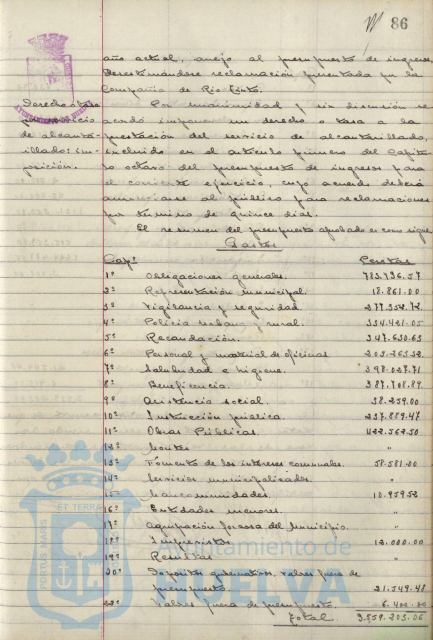 86
año actual, anejo al presupuesto de ingresos,
desestimándose reclamación presentada por la
Compañía de Rio-Tinto.
Derecho o tasa
por servicio
de alcanta-
rillado: im-
posición.
Por unanimidad y sin discusión se
acordó imponer un derecho o tasa a la
prestación del servicio de alcantarillado,
incluido en el artículo primero del Capítu-
lo octavo del presupuesto de ingresos para
el corriente ejercicio, cuyo acuerdo deberá
anunciarse al público para reclamaciones
por término de quince días.
El resumen del presupuesto aprobado es como sigue
Gastos
Capº Pesetas
1º Obligaciones generales. 783.736.57
2º Representación municipal. 18.861.00
3º Vigilancia y seguridad. 277.352.72
4º Policía urbana y rural. 334.421.05
5º Recaudación. 347.630.63
6º Personal y material de oficinas 203.265.32
7º Salubridad e higiene. 398.027.71
8º Beneficencia. 387.708.89
9º Asistencia social. 38.259.00
10º Instrucción pública. 237.889.47
11º Obras Públicas. 422.562.50
12º Montes "
13º Fomento de los intereses comunales. 58.581.00
14º Servicios municipalizados. "
15º Mancomunidades. 10.959.52
16º Entidades menores. "
17º Agrupación forzosa del Municipio. "
18º Imprevistos 12.000.00
19º Resultas "
20º Depósitos gubernativos, valores fuera de
presupuesto. 21.549.48
22º Valores fuera de presupuesto. 6.400.00
Total. 3.559.203.06
PORTUS MARIS ET TERRAE
Ayuntamiento de
HUELVA